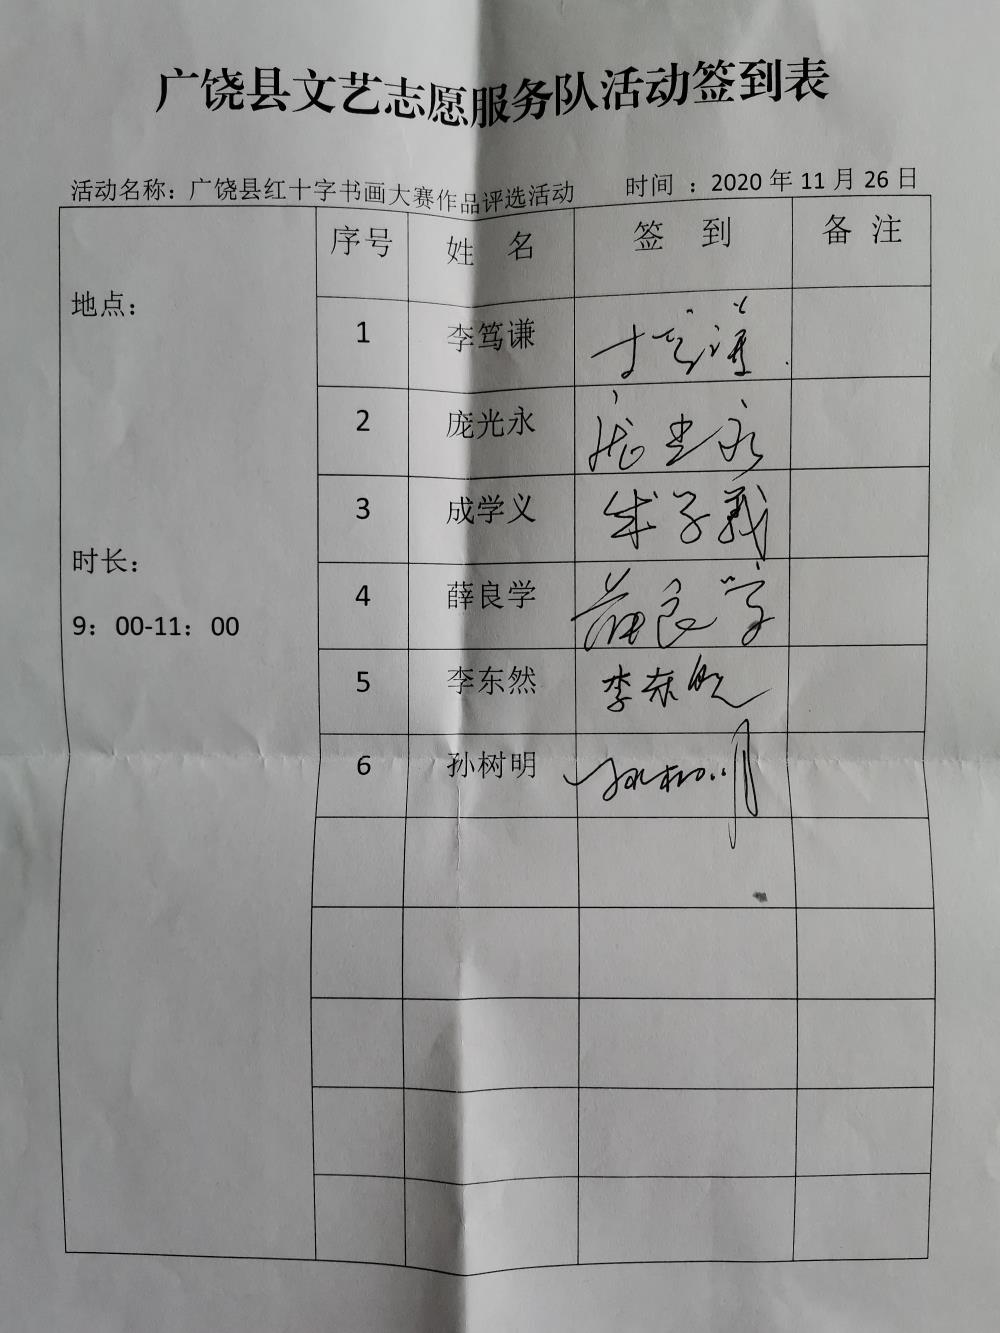 广饶县文艺志愿服务队活动签到表
活动名称：广饶县红十字书画大赛作品评选活动 时间 ：2020 年 11 月 26 日
序号 姓 名 签 到 备 注
地点：
1 李笃谦 李笃谦
2 庞光永 庞光永
3 成学义 成学義
时长：
9：00-11：00
4 薛良学 薛良学
5 李东然 李东然
6 孙树明 孙树明